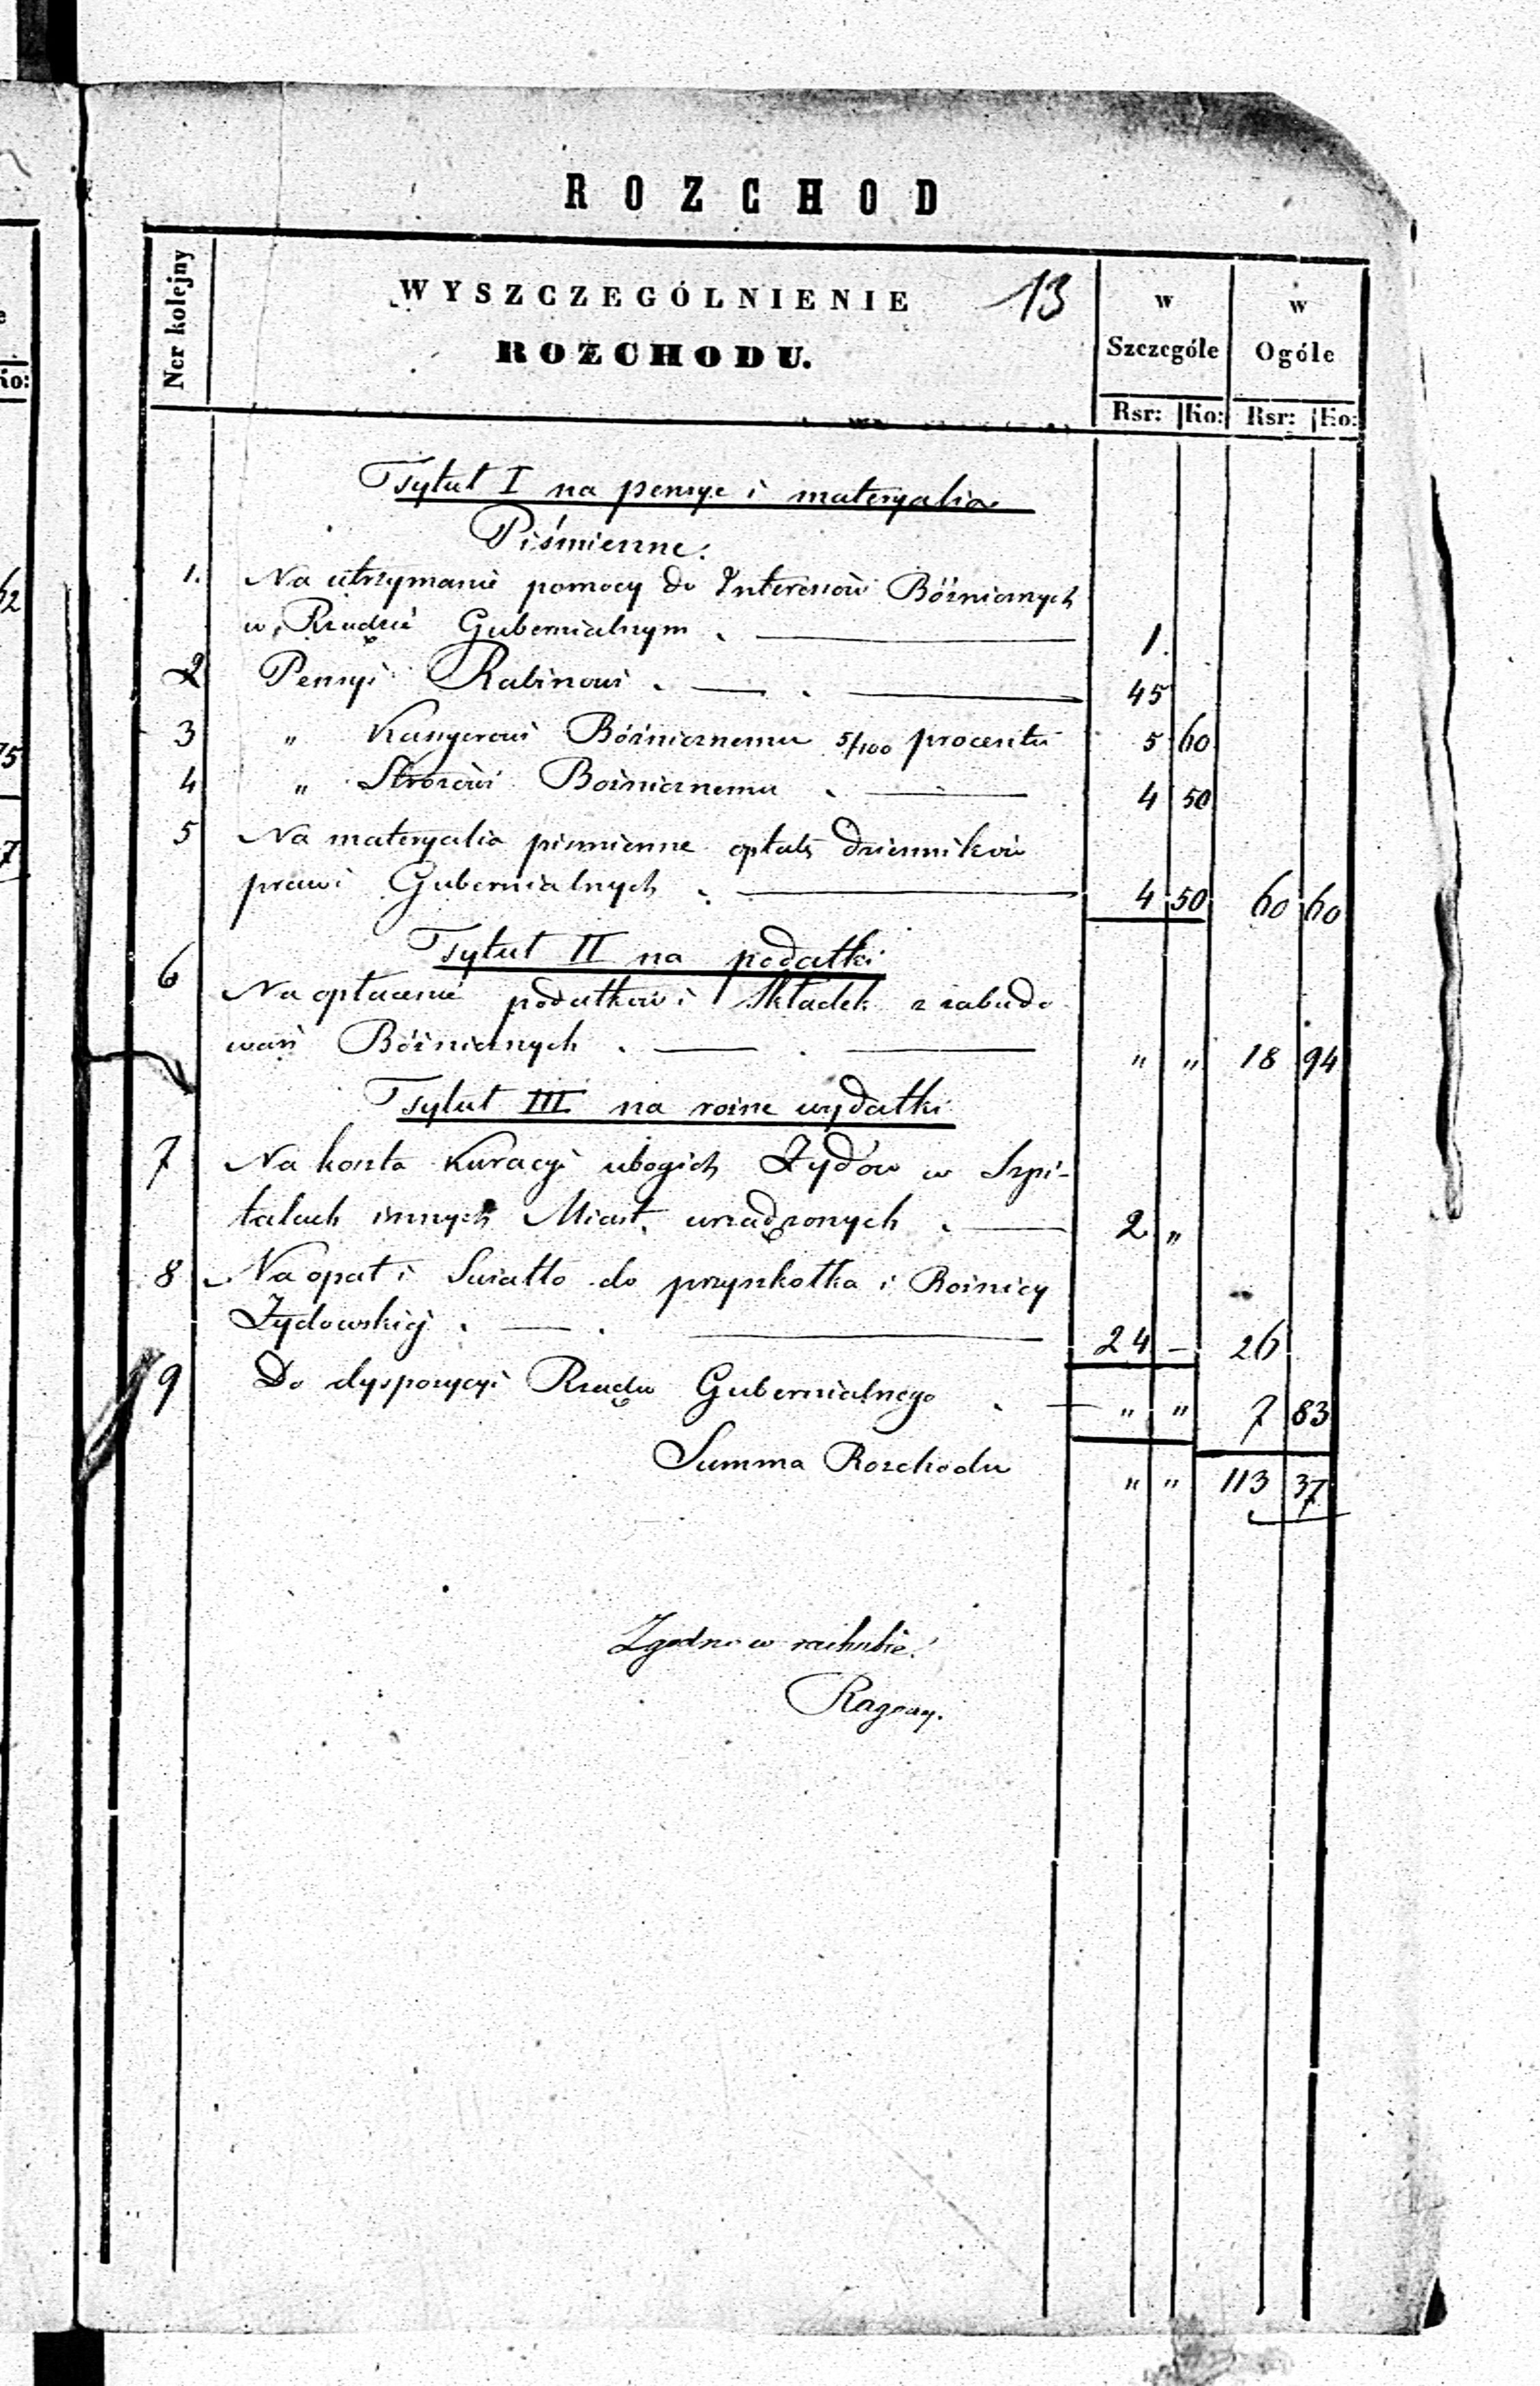 ROZCHOD
Ner kolejny
WYSZCZEGÓLNIENIE 13
ROZCHODU.
w Szczególe
w Ogóle
Rsr: Ko: Rsr: Ko:
Tytuł I na pensye i materyalia
Piśmienne.
1. Na utrzymanie pomocy do Interessów Bóżnicznych
w Rządzie Gubernialnym . — 1.
2 Pensyi Rabinowi . — . — 45
3 " Kasyerowi Bóżnicznemu 5/100 procentu 5 60
4 " Stróżowi Bożnicznemu . — 4 50
5 Na materyalia piśmienne opłatę Dzienników
praw i Gubernialnych . — 4 50 60 60
Tytuł II na podatki
6 Na opłacenie podatków i Składek z zabudo
wań Bóżnicznych . — . — " " 18 94
Tytuł III na rożne wydatki
7 Na koszta Kuracyi ubogich Żydów w Szpi-
talach innych Miast urządzonych . — 2 "
8 Na opał i Swiatło do przyszkołka i Bożnicy
Żydowskiej . — . — 24 — 26
9 Do dyspozycyi Rządu Gubernialnego . — " " 7 83
Summa Rozchodu " " 113 37
Zgodno w rachubie!